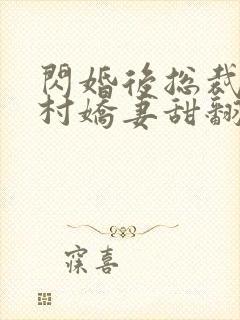 閃婚後総裁
村嬌妻甜翻
寐喜